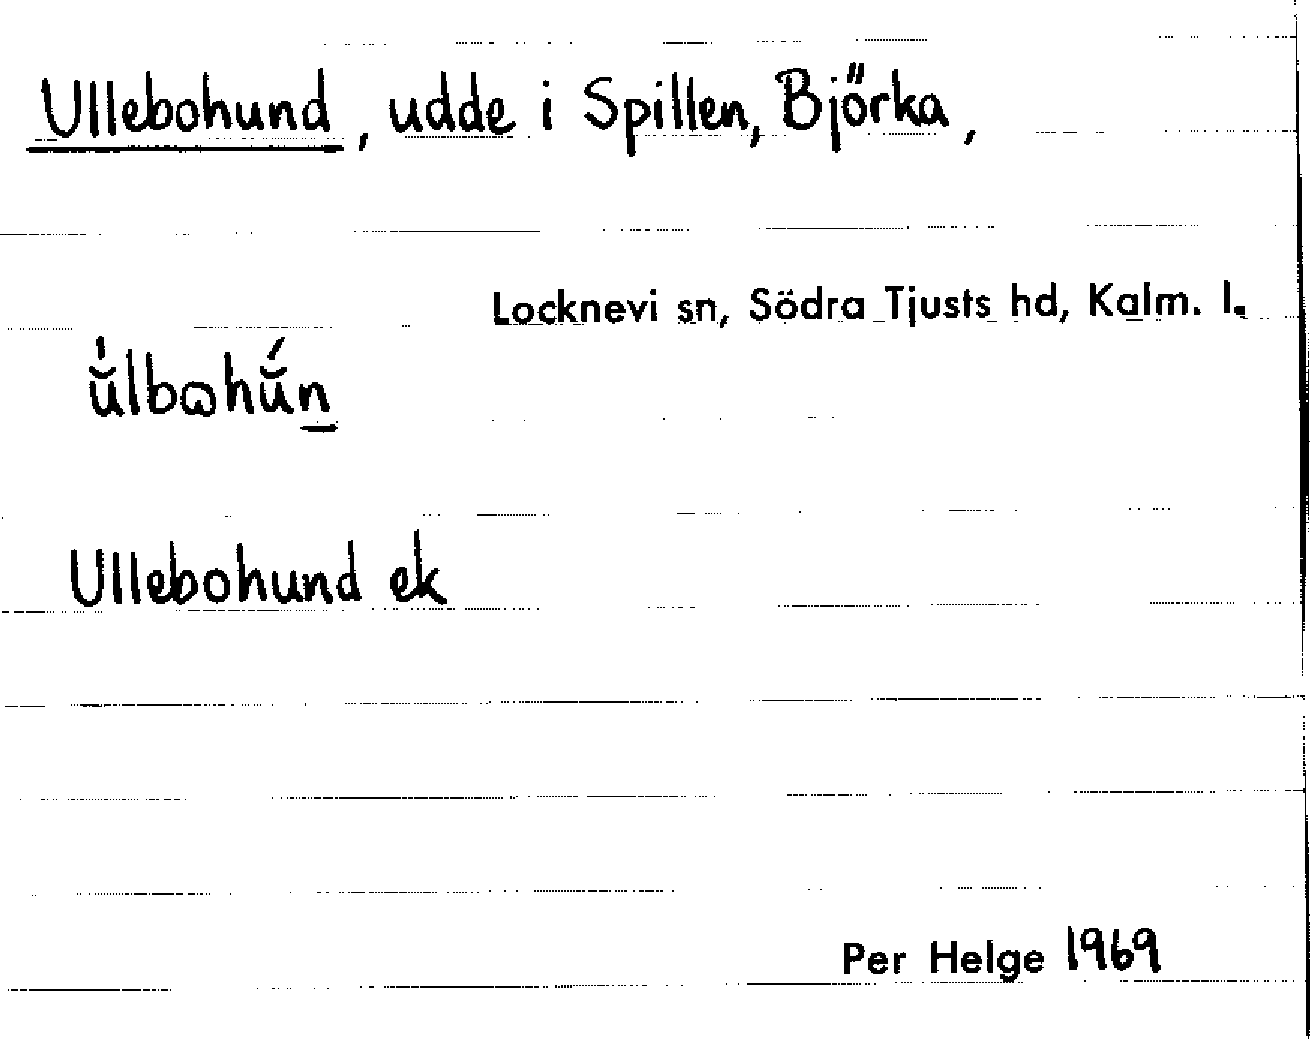 Ullebohund, udde i Spillen, Björka,
Locknevi sn, Södra Tjusts hd, Kalm. l.
Ullebohund ek
Per Helge 1969